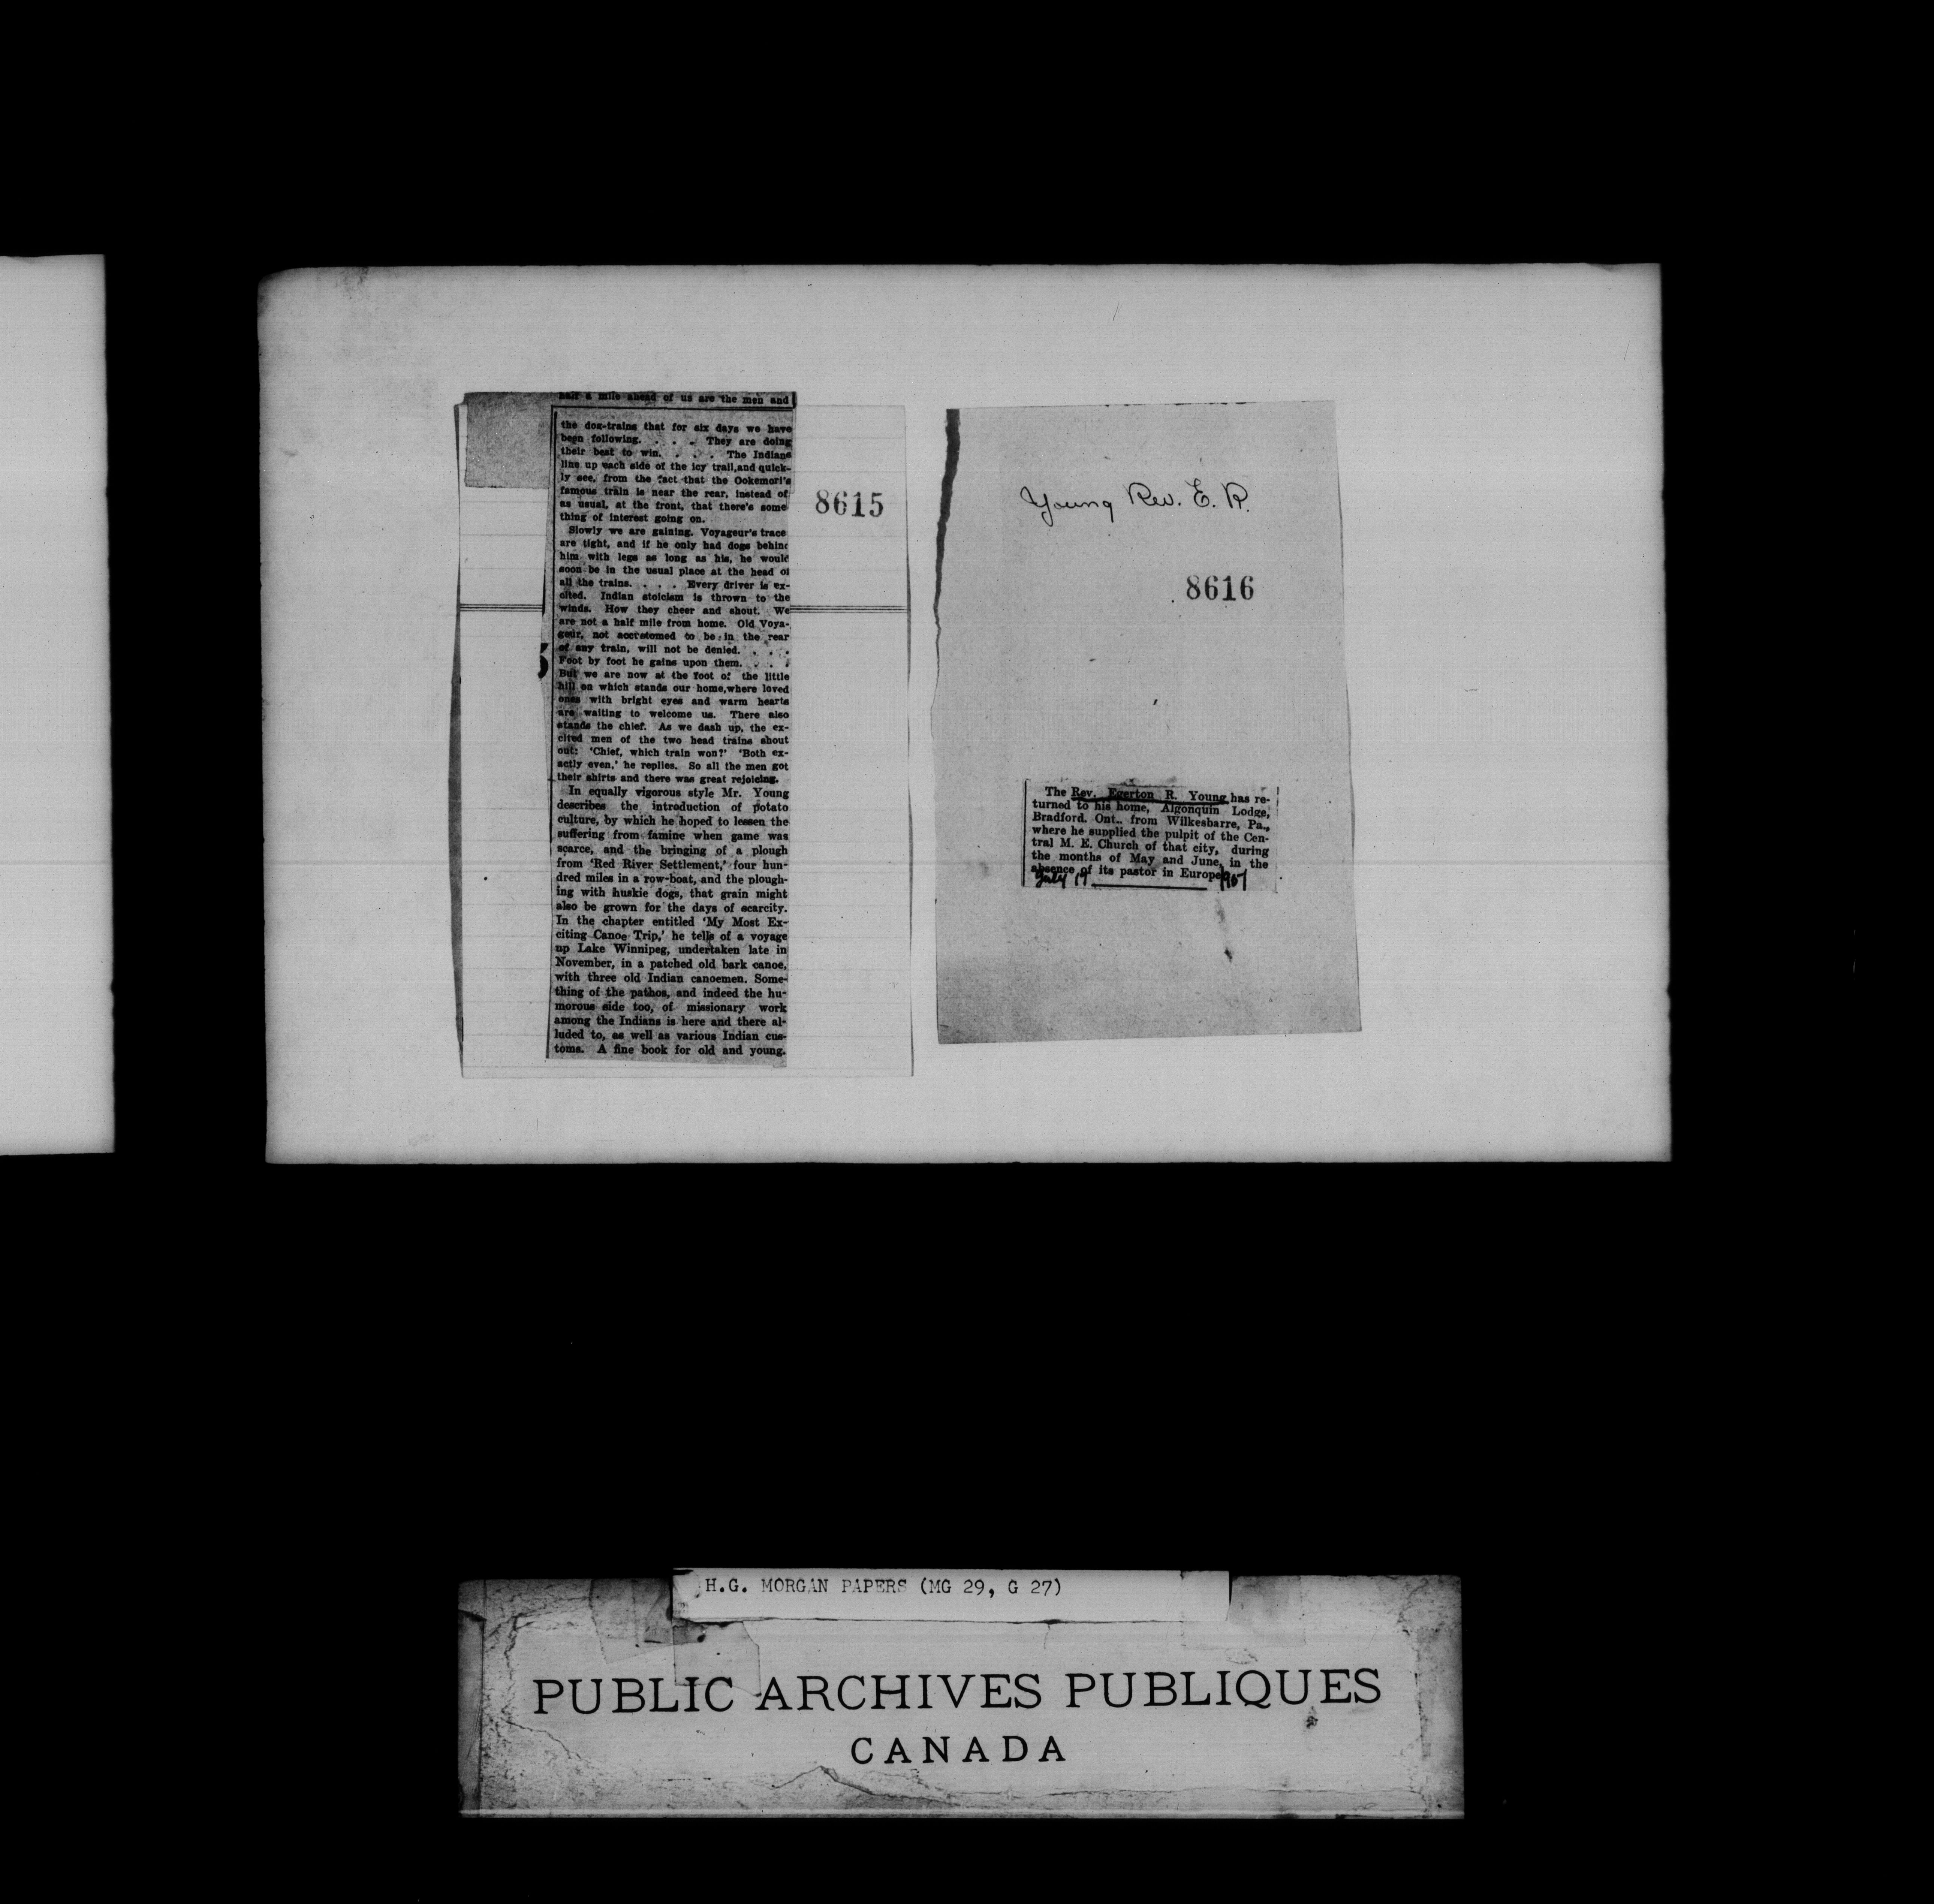 half a mile ahead of us are the men and
the dog-trains that for six days we have
been following. . . . They are doing
their best to win. . . . The Indians
line up each side of the icy trail,and quick-
ly see, from the fact that the Ookemori's
famous train is near the rear, instead of
as usual, at the front, that there's some
thing of interest going on.
Slowly we are gaining. Voyageur's trace
are tight, and if he only had dogs behind
him with legs as long as his, he would
soon be in the usual place at the head of
all the trains. . . . Every driver is ex-
cited. Indian stoicism is thrown to the
winds. How they cheer and shout. We
are not a half mile from home. Old Voya-
geur, not accustomed to be in the rear
of any train, will not be denied. . . .
Foot by foot he gains upon them. . . .
But we are now at the foot of the little
hill on which stands our home,where loved
ones with bright eyes and warm hearts
are waiting to welcome us. There also
stands the chief. As we dash up, the ex-
cited men of the two head trains shout
out: 'Chief, which train won?' 'Both ex-
actly even,' he replies. So all the men got
their shirts and there was great rejoicing.
In equally vigorous style Mr. Young
describes the introduction of potato
culture, by which he hoped to lessen the
suffering from famine when game was
scarce, and the bringing of a plough
from 'Red River Settlement,' four hun-
dred miles in a row-boat, and the plough-
ing with huskie dogs, that grain might
also be grown for the days of scarcity.
In the chapter entitled 'My Most Ex-
citing Canoe Trip,' he tells of a voyage
up Lake Winnipeg, undertaken late in
November, in a patched old bark canoe,
with three old Indian canoemen. Some-
thing of the pathos, and indeed the hu-
morous side too, of missionary work
among the Indians is here and there al-
luded to, as well as various Indian cus-
toms. A fine book for old and young.
8615
Young Rev. E. R.
8616
The Rev. Egerton R. Young has re-
turned to his home, Algonquin Lodge,
Bradford. Ont.. from Wilkesbarre, Pa.,
where he supplied the pulpit of the Cen-
tral M. E. Church of that city, during
the months of May and June, in the
absence of its pastor in Europe
July 17 1907
H.G. MORGAN PAPERS (MG 29, G 27)
PUBLIC ARCHIVES PUBLIQUES
CANADA